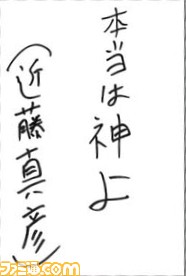 本当は神よ
（近藤真彦）
ファミ通.com